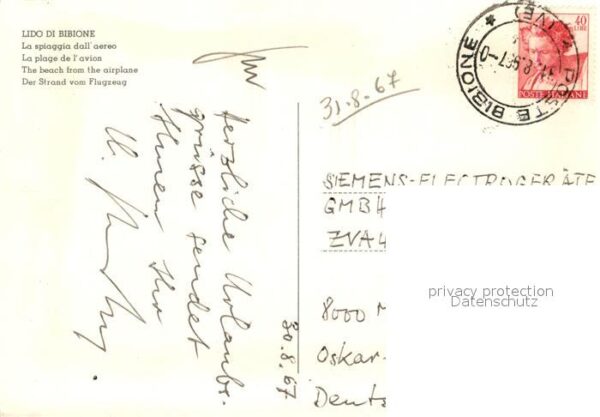 LIDO DI BIBIONE
La spiaggia dall'aereo
La plage de l'avion
The beach from the airplane
Der Strand vom Flugzeug
Herzliche Urlaubs-
grüsse sendet
Ihnen Ihr
30.8.67
31.8.67
40
LIRE
POSTE ITALIANE
POSTE BIBIONE
(VE)
SIEMENS-ELECTROGERÄTE
GMBH
ZVA4
8000 M
Oskar-
Deuts
privacy protection
Datenschutz